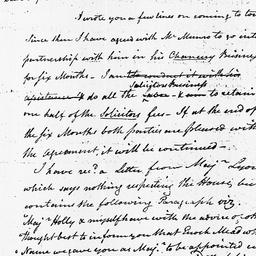 I wrote you a few lines on coming to to
Since then I have agreed with Mr Munro to go into
partnership with him in his Chancery Business
for six Months - I am to conduct it with his
Solicitors Business
assistance & do all the labor & am to retain
one half of the Solicitors fees - If at the end of
the six Months both parties are pleased with
the Agreement it will be continued -
I have rec? a Letter from Majr Lyon
which says nothing respecting the House, but
contains the following Paragraph viz.
"Majr Holly & myself have with the advice of oth
thought best to inform you that Enoch Mead wh
Name we gave you as Majr to be appointed